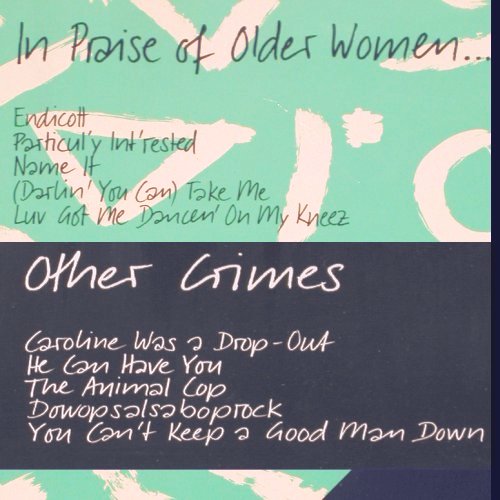 In Praise of Older Women...
Endicott
Particul'y Int'rested
Name It
(Darlin' You Can) Take Me
Luv Got Me Dancen' On My Kneez
Other Crimes
Caroline Was a Drop-Out
He Can Have You
The Animal Cop
Dowopsalsaboprock
You Can't Keep a Good Man Down